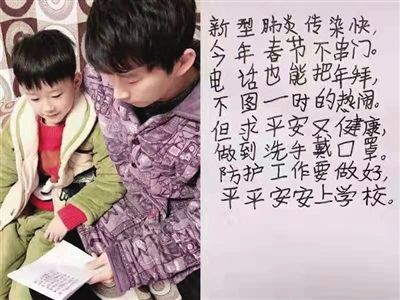 新型肺炎传染快,
今年春节不串门。
电话也能把年拜,
不图一时的热闹。
但求平安又健康,
做到洗手戴口罩。
防护工作要做好,
平平安安上学校。